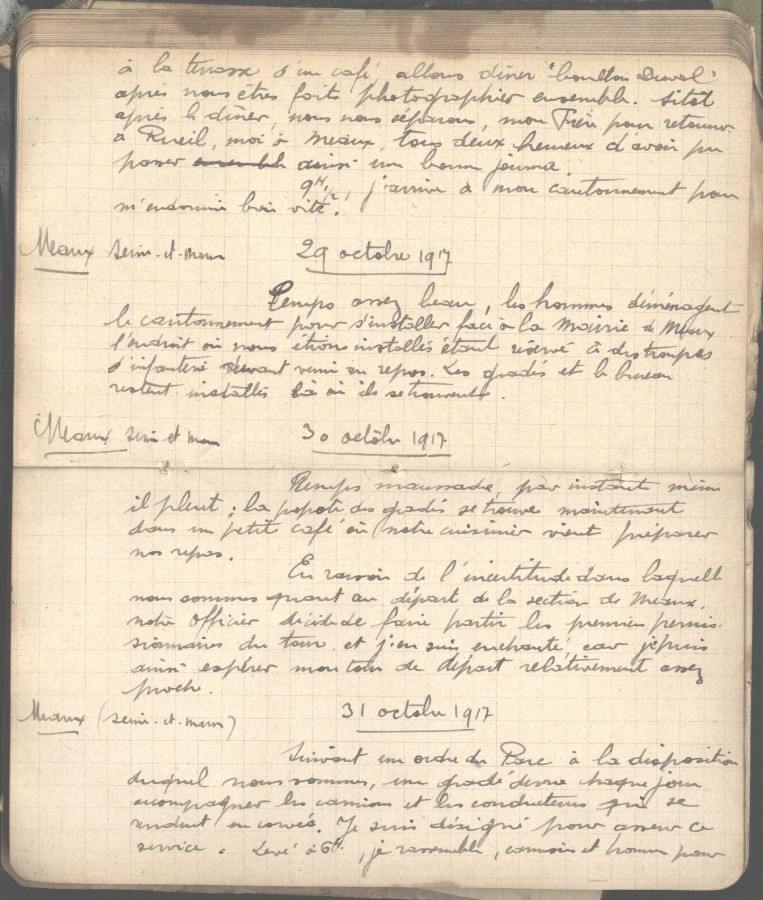 à la terrasse d'un café, allons dîner "bouillon Duval"
après nous êtres faits photographier ensemble. Sitôt
après le dîner, nous nous séparons, mon Frère pour retourner
à Rueil, moi à Meaux, tous deux heureux d'avoir pu
passer ensemble ainsi une bonne journée.
9H 1/2, j'arrive à mon cantonnement pour
m'endormir bien vite.
Meaux Seine-et-Marne 29 octobre 1917
Temps assez beau, les hommes déménagent
le cantonnement pour s'installer face à la Mairie de Meaux
l'endroit où nous étions installés étant réservé à des troupes
d'infanterie devant venir au repos. Les gradés et le bureau
restent installés là où ils se trouvent.
Meaux Seine et Marne 30 octobre 1917
Temps maussade, par instant même
il pleut ; la popote des gradés se trouve maintenant
dans un petit café où notre cuisinier vient préparer
nos repas.
En raison de l'incertitude dans laquelle
nous sommes quant au départ de la section de Meaux,
notre Officier décide de faire partir les premiers permis-
sionnaires du tour, et j'en suis enchanté, car je puis
ainsi espérer mon tour de départ relativement assez
proche.
Meaux (Seine-et-Marne) 31 octobre 1917
Suivant un ordre du Parc à la disposition
duquel nous sommes, un gradé devra chaque jour
accompagner les camions et les conducteurs qui se
rendent en corvée. Je suis désigné pour assurer ce
service. Levé à 6H, je rassemble, camions et hommes pour